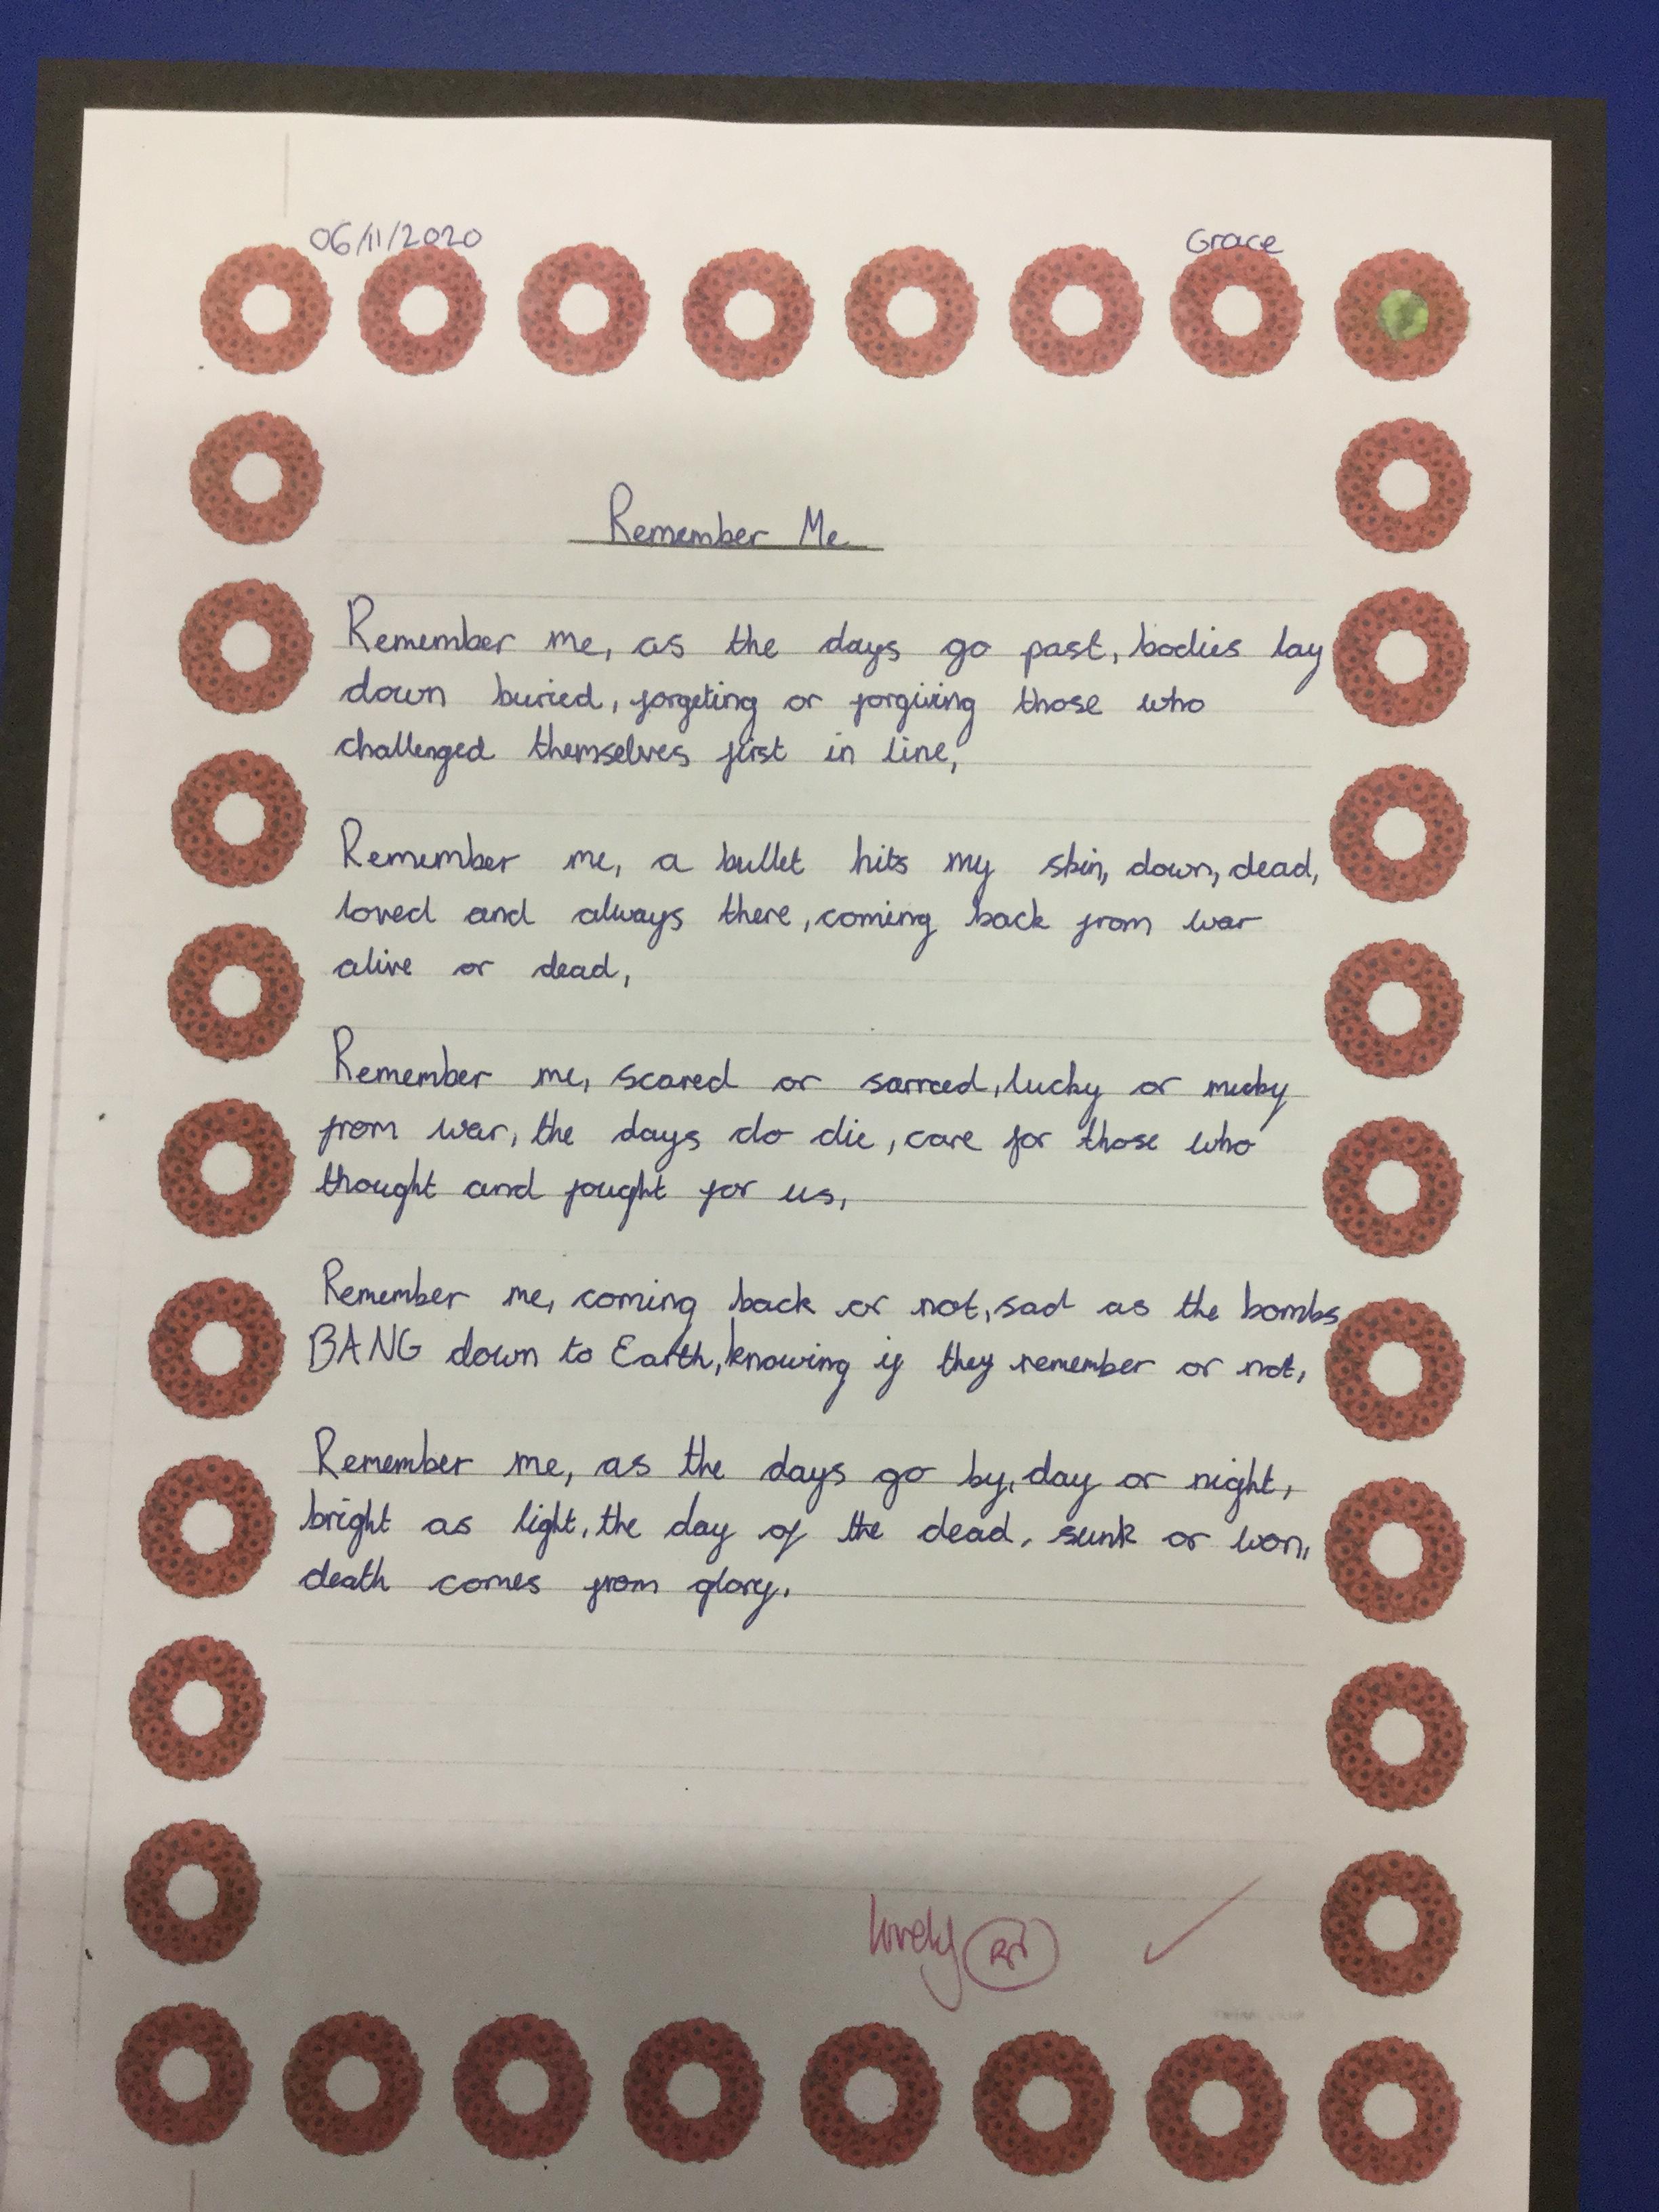 06/11/2020 Grace
Remember Me
Remember me, as the days go past, bodies lay
down buried, forgeting or forgiving those who
challenged themselves first in line,
Remember me, a bullet hits my skin, down, dead,
loved and always there, coming back from war
alive or dead,
Remember me, scared or sarred, lucky or mucky
from war, the days do die, care for those who
thought and fought for us,
Remember me, coming back or not, sad as the bombs
BANG down to Earth, knowing if they remember or not,
Remember me, as the days go by, day or night,
bright as light, the day of the dead, sunk or won,
death comes from glory.
lovely